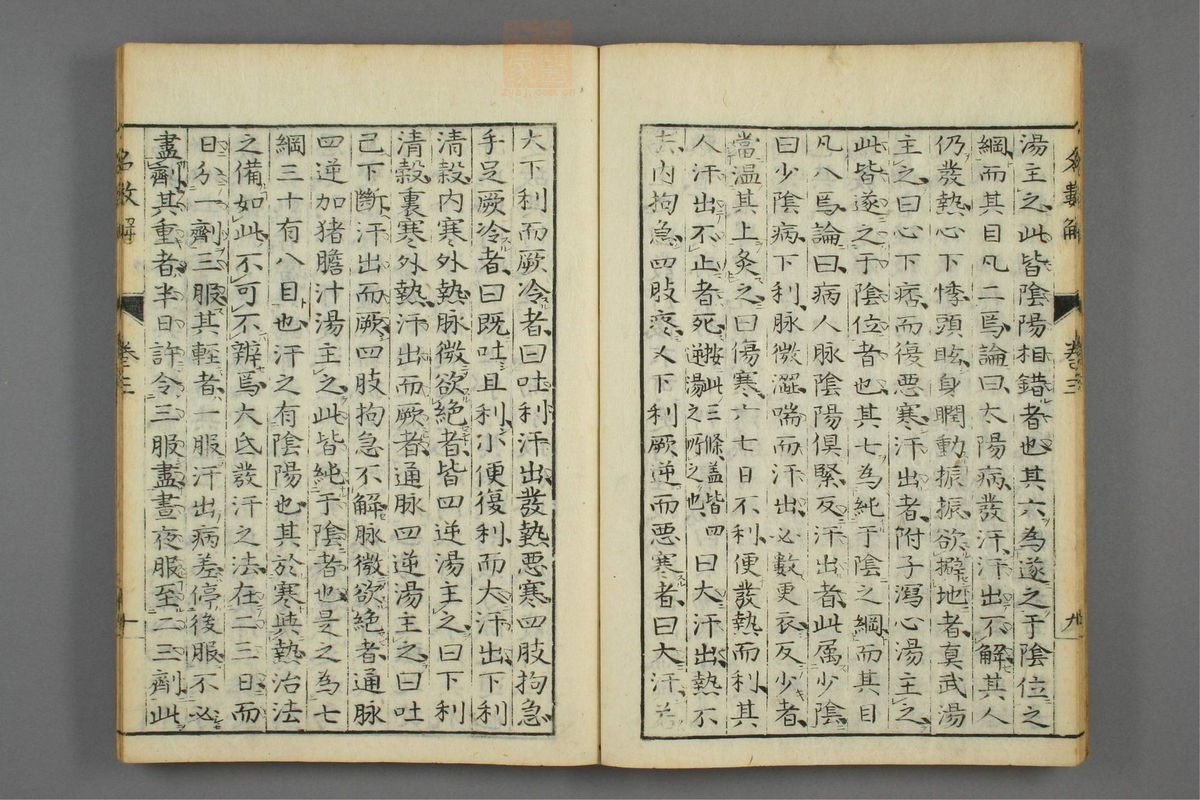 湯主之此皆陰陽相錯者也其六為遂之于陰位之
綱而其目凡二焉論曰太陽病發汗汗出不解其人
仍發熱心下悸頭眩身瞤動振振欲擗地者真武湯
主之曰心下痞而復悪寒汗出者附子瀉心湯主之
此皆遂之于陰位者也其七為純于陰之綱而其目
凡八焉論曰病人脉陰陽俱緊反汗出者此属少陰
曰少陰病下利脉微澀喘而汗出必數更衣反少者
當温其上灸之曰傷寒六七日不利便發熱而利其
人汗出不止者死按此三條蓋皆四逆湯之所之也曰大汗出熱不
去内拘急四肢疼又下利厥逆而悪寒者曰大汗若
大下利而厥冷者曰吐利汗出發熱悪寒四肢拘急
手足厥冷者曰既吐且利小便復利而大汗出下利
清穀内寒外熱脉微欲絶者皆四逆湯主之曰下利
清穀裏寒外熱汗出而厥者通脉四逆湯主之曰吐
已下斷汗出而厥四肢拘急不解脉微欲絶者通脉
四逆加猪膽汁湯主之此皆純于陰者也是之為七
綱三十有八目也汗之有陰陽也其於寒與熱治法
之備如此不可不辨焉大氐發汗之法在二三日而
日分一劑三服其輕者一服汗出病差停後服不必
盡劑其重者半日許令三服盡晝夜服至二三劑此
名數解
卷三
九
名數解
卷三
十